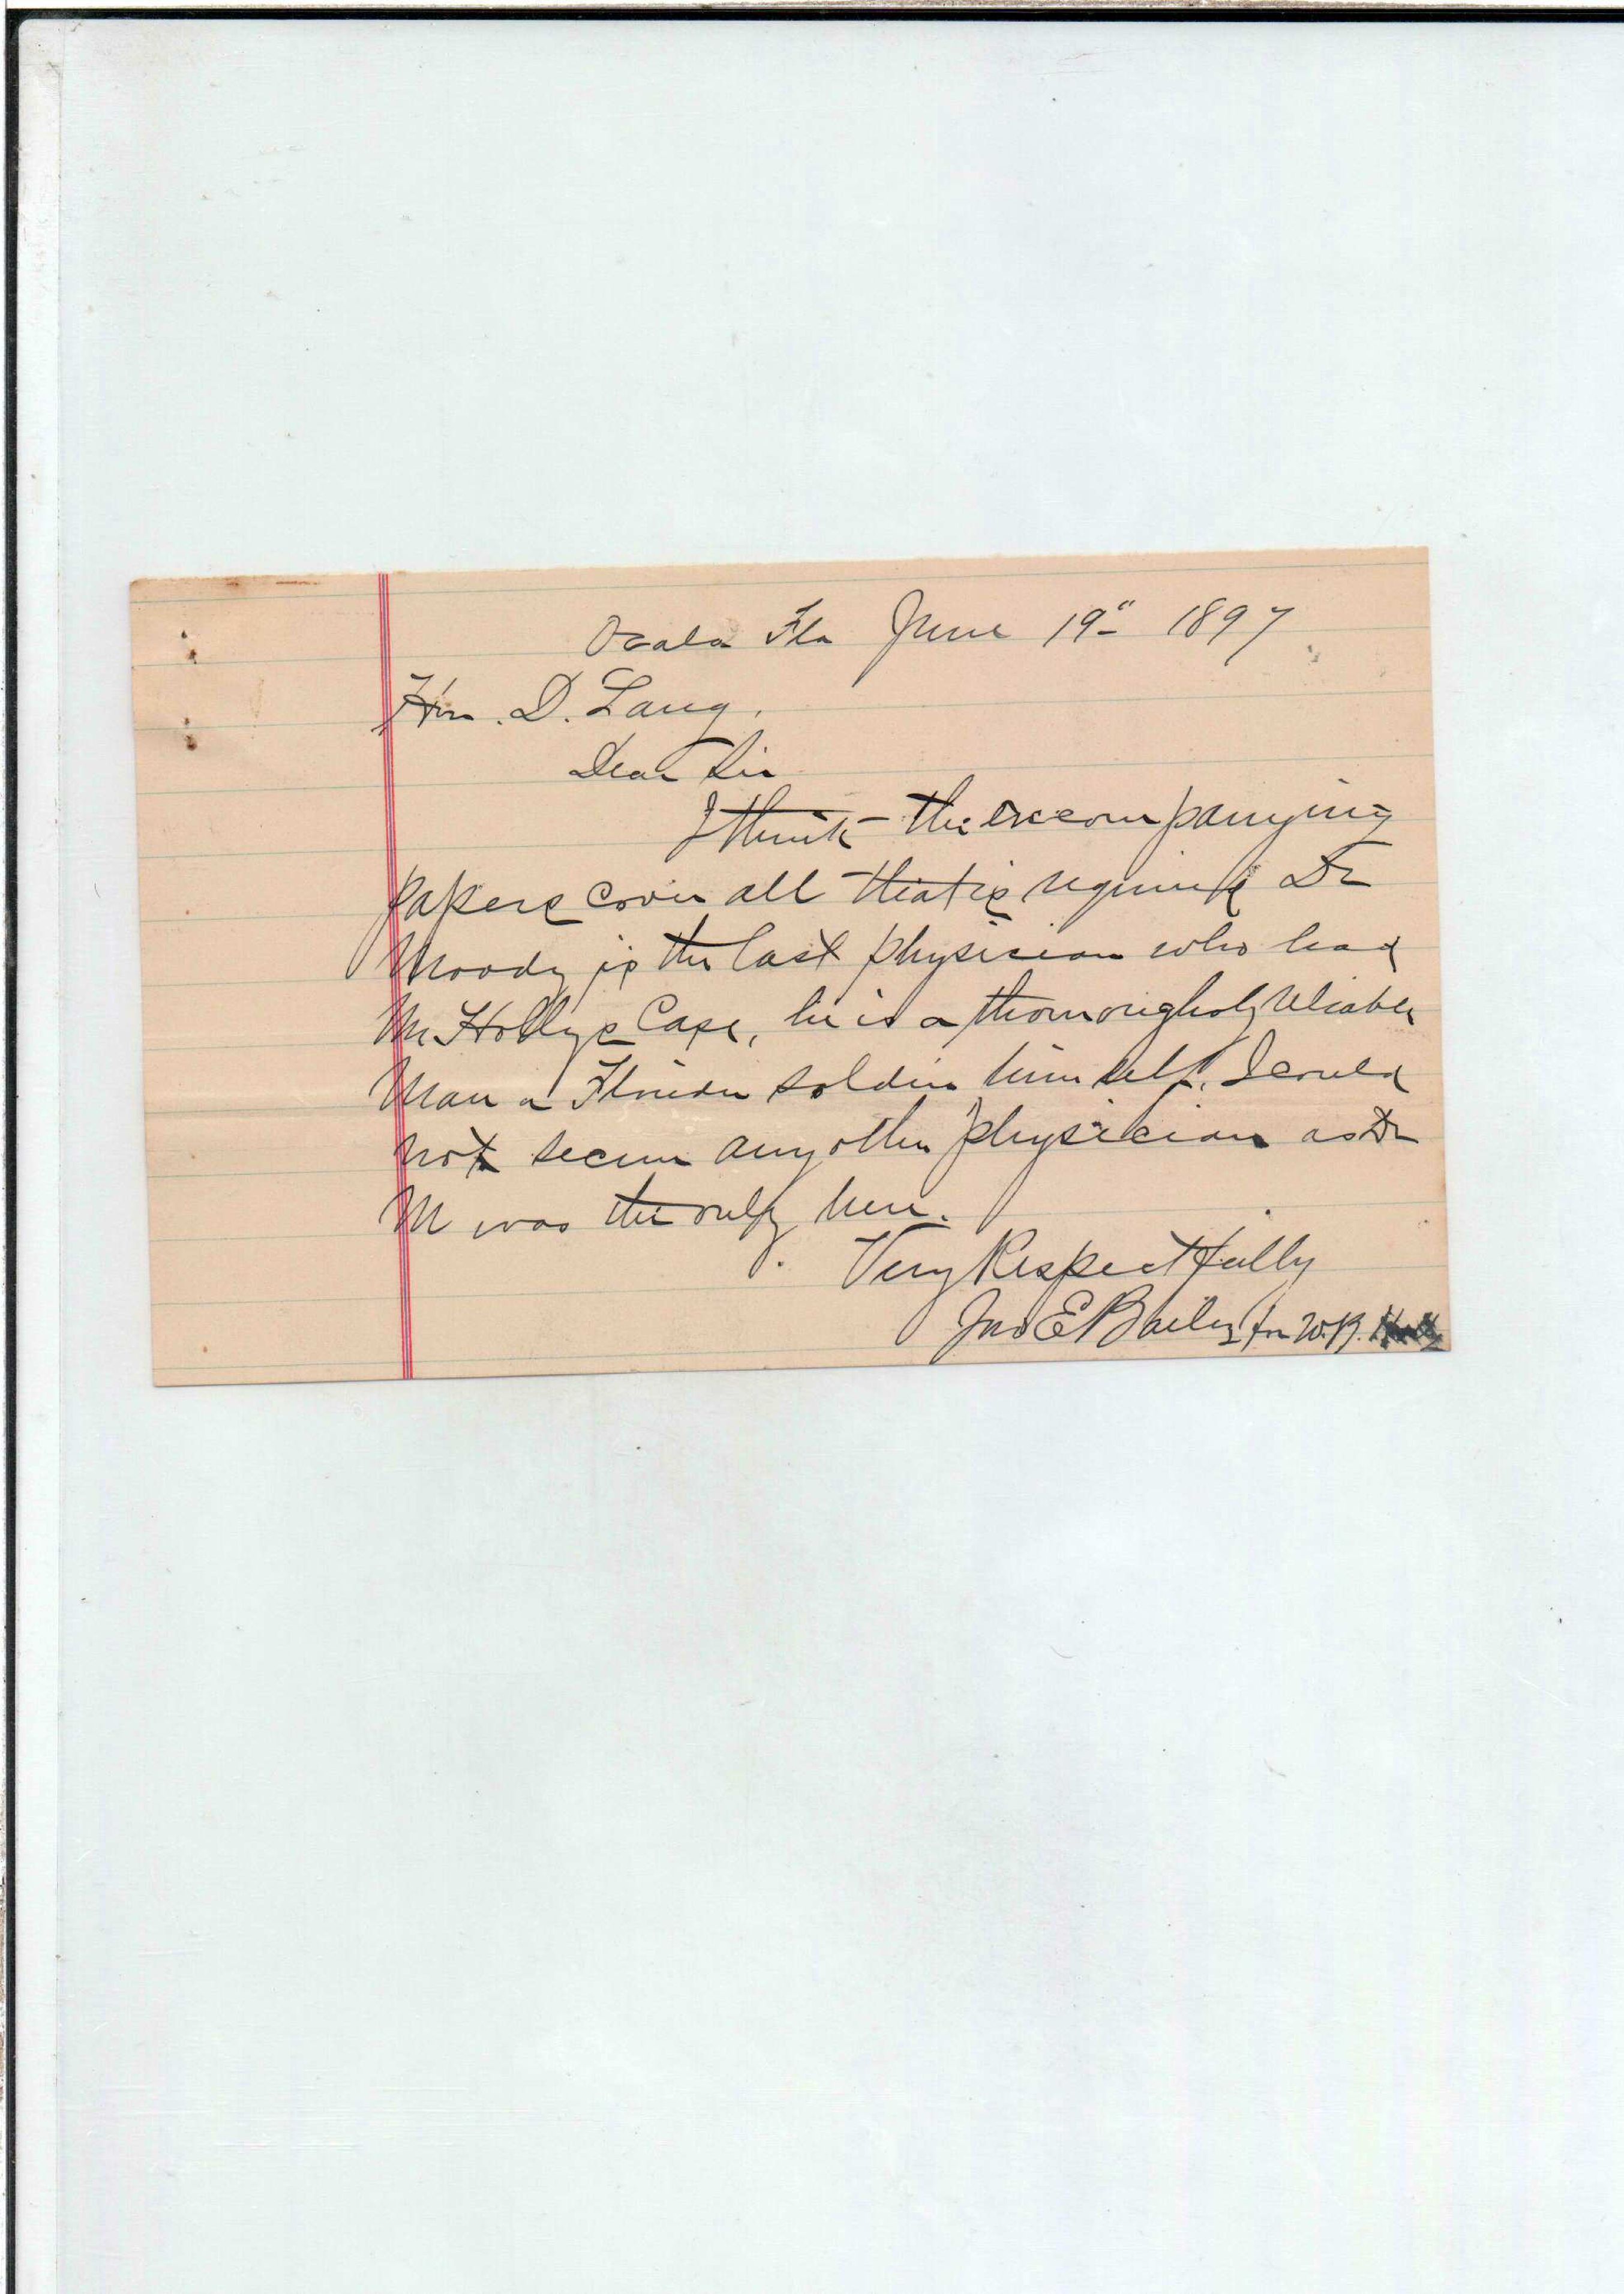 Ocala Fla June 19" 1897
Hon. D. Lang.
Dear Sir
I think the accompanying
papers cover all that is required Dr
Moody is the last physician who had
Mr Hollys Case, he is a thorroughly reliable
Man a Florida soldier himself. I could
not secure any other physician as Dr
M was the only here.
Very Respectfully
Jno E Bailey for W. B.